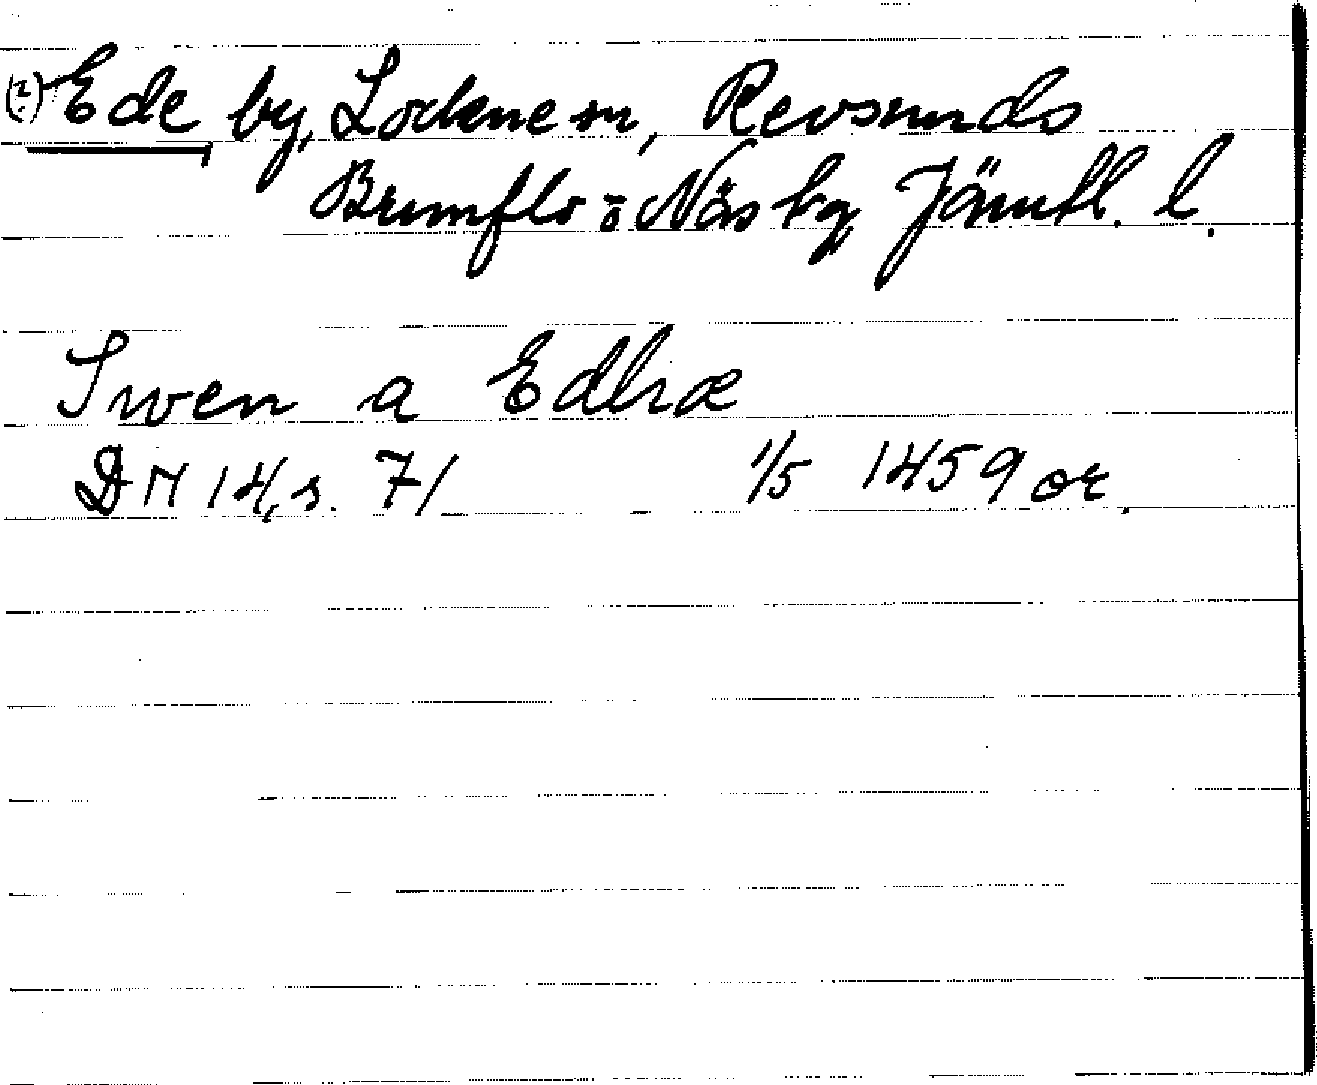 (?) Ede by, Lockne sn, Revsunds
Brunflo o Näs tg Jämtl. l.
Swen a Edhræ
DN 14, s. 71 1/5 1459 or.